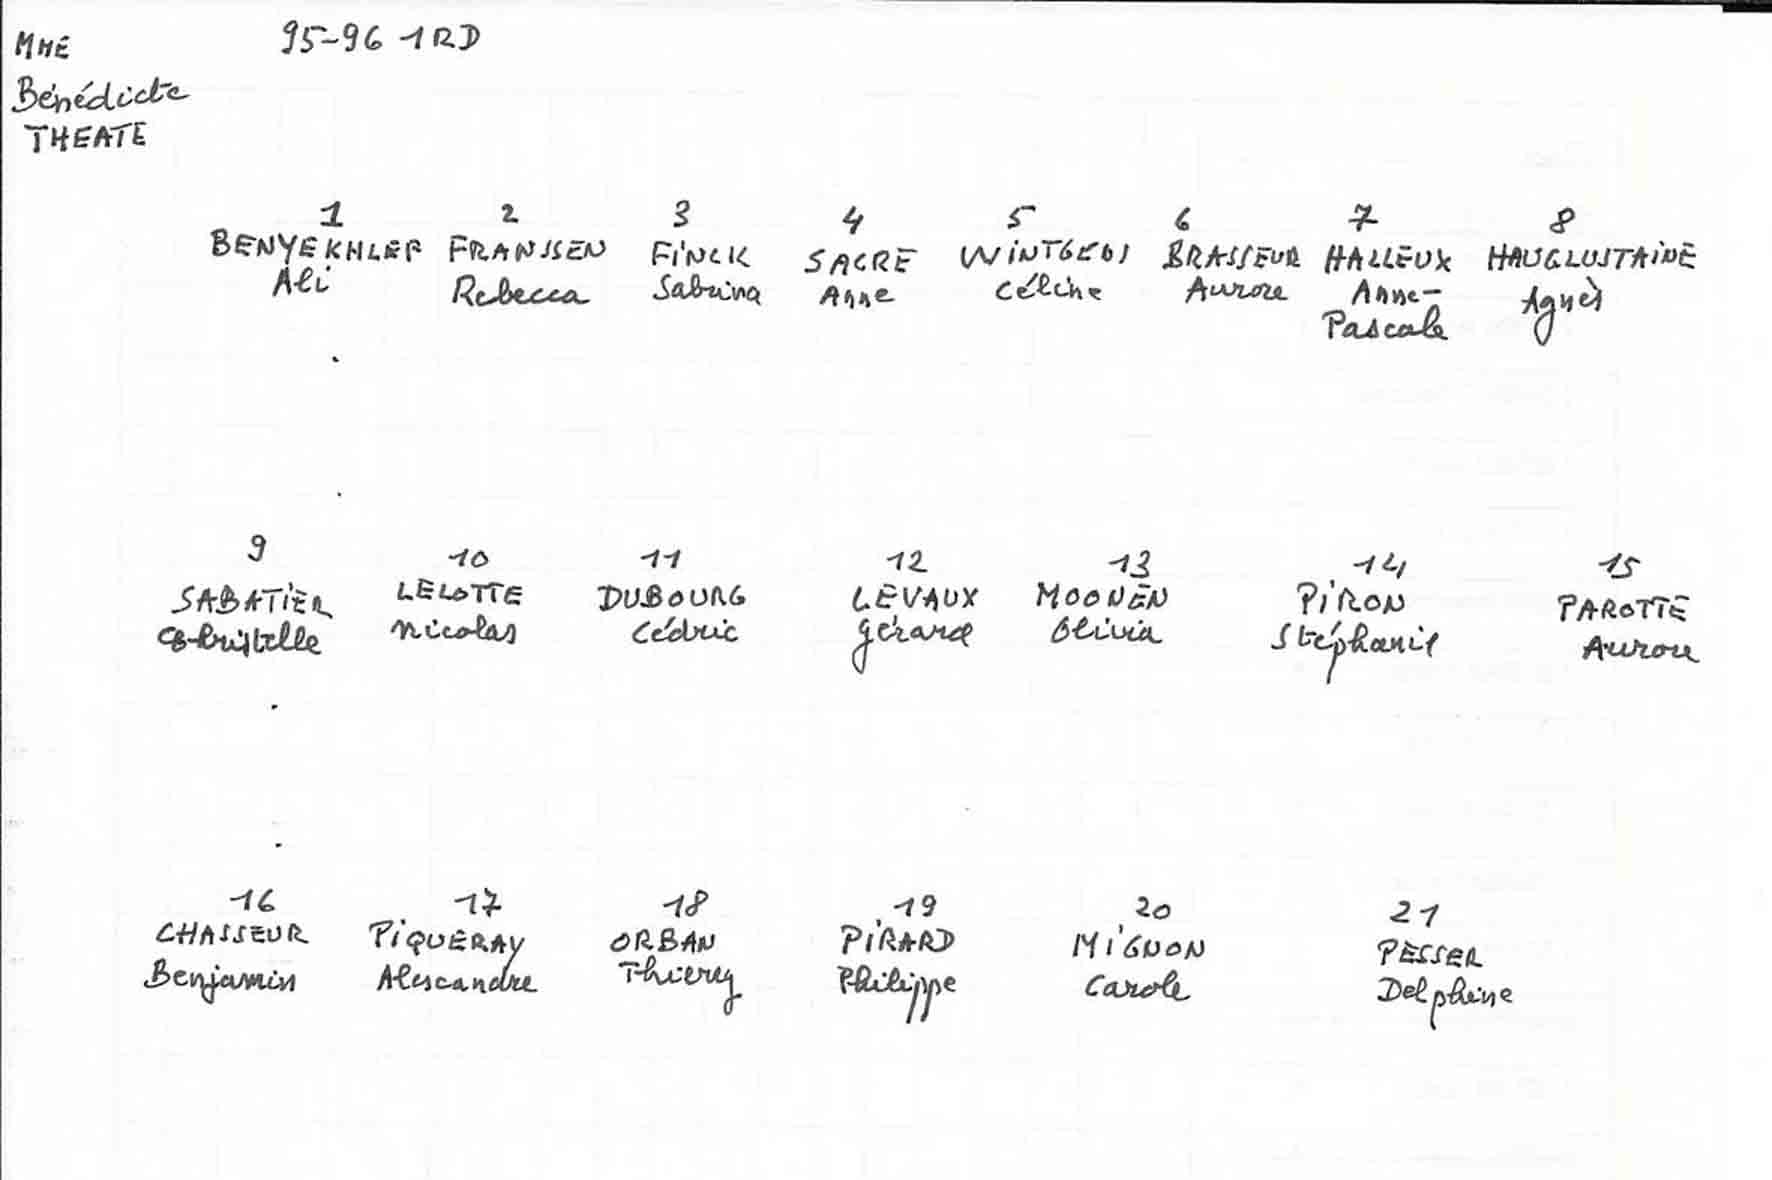 MME 95-96 1RD
Bénédicte
THEATE
1 2 3 4 5 6 7 8
BENYEKHLEF FRANSSEN FINCK SACRE WINTGENS BRASSEUR HALLEUX HAUGLUSTAINE
Ali Rebecca Sabrina Anne Céline Aurore Anne- Agnès
Pascale
9 10 11 12 13 14 15
SABATIER LELOTTE DUBOURG LEVAUX MOONEN PIRON PAROTTE
Christelle Nicolas Cédric Gérard Olivia Stéphanie Aurore
16 17 18 19 20 21
CHASSEUR PIQUERAY ORBAN PIRARD MIGNON PESSER
Benjamin Alexandre Thierry Philippe Carole Delphine